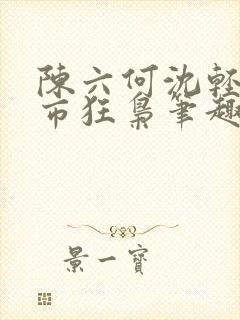 陳六何沈輕
帀狂梟筆趣
景一寶